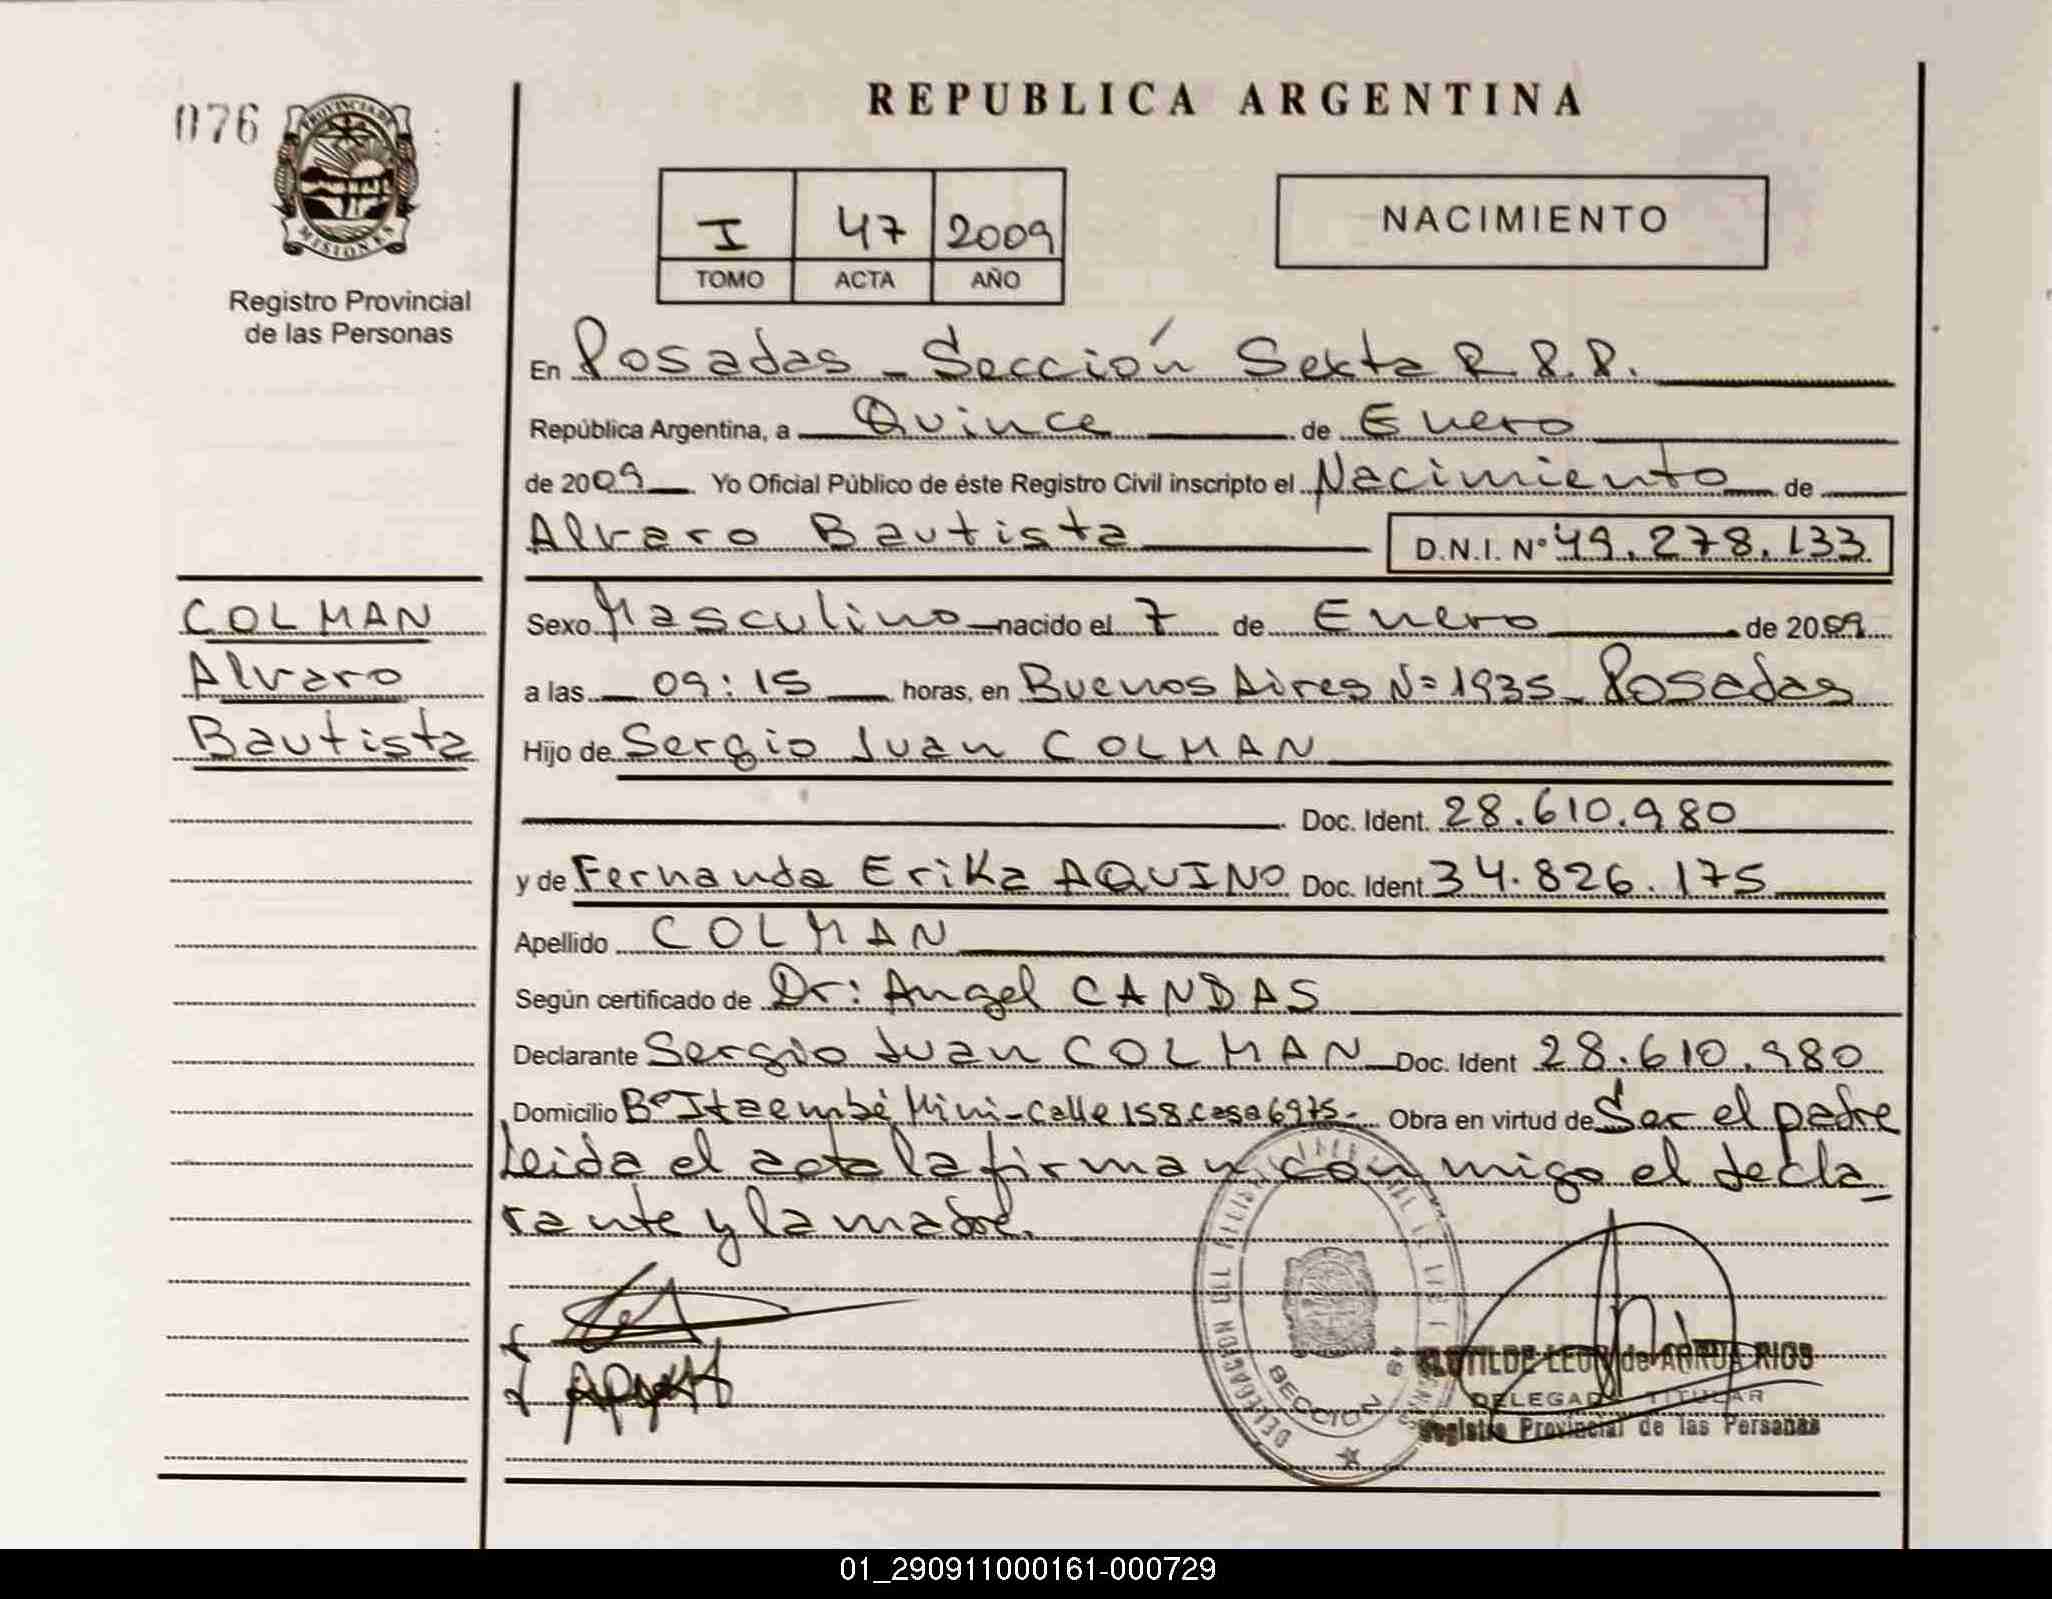 REPUBLICA ARGENTINA
076
PROVINCIA DE
MISIONES
Registro Provincial
de las Personas
I 47 2009
TOMO ACTA AÑO
NACIMIENTO
En Posadas - Sección Sexta R.P.P.
República Argentina, a Quince de Enero
de 2009 Yo Oficial Público de éste Registro Civil inscripto el Nacimiento de
Alvaro Bautista D.N.I. Nº 49.278.133
COLMAN
Alvaro
Bautista
Sexo Masculino nacido el 7 de Enero de 2009
a las 09:15 horas, en Buenos Aires Nº 1935 - Posadas
Hijo de Sergio Juan COLMAN
Doc. Ident. 28.610.980
y de Fernanda Erika AQUINO Doc. Ident. 34.826.175
Apellido COLMAN
Según certificado de Dr: Angel CANDAS
Declarante Sergio Juan COLMAN Doc. Ident 28.610.980
Domicilio Bº Itaembé Mini - Calle 158 casa 6975 - Obra en virtud de Ser el padre
Leida el acta la firman con migo el decla_
rante y la madre.
DELEGACION DEL
SECCION
CLOTILDE LEON de ARRUA RIOS
DELEGADA TITULAR
Registro Provincial de las Personas
01_290911000161-000729